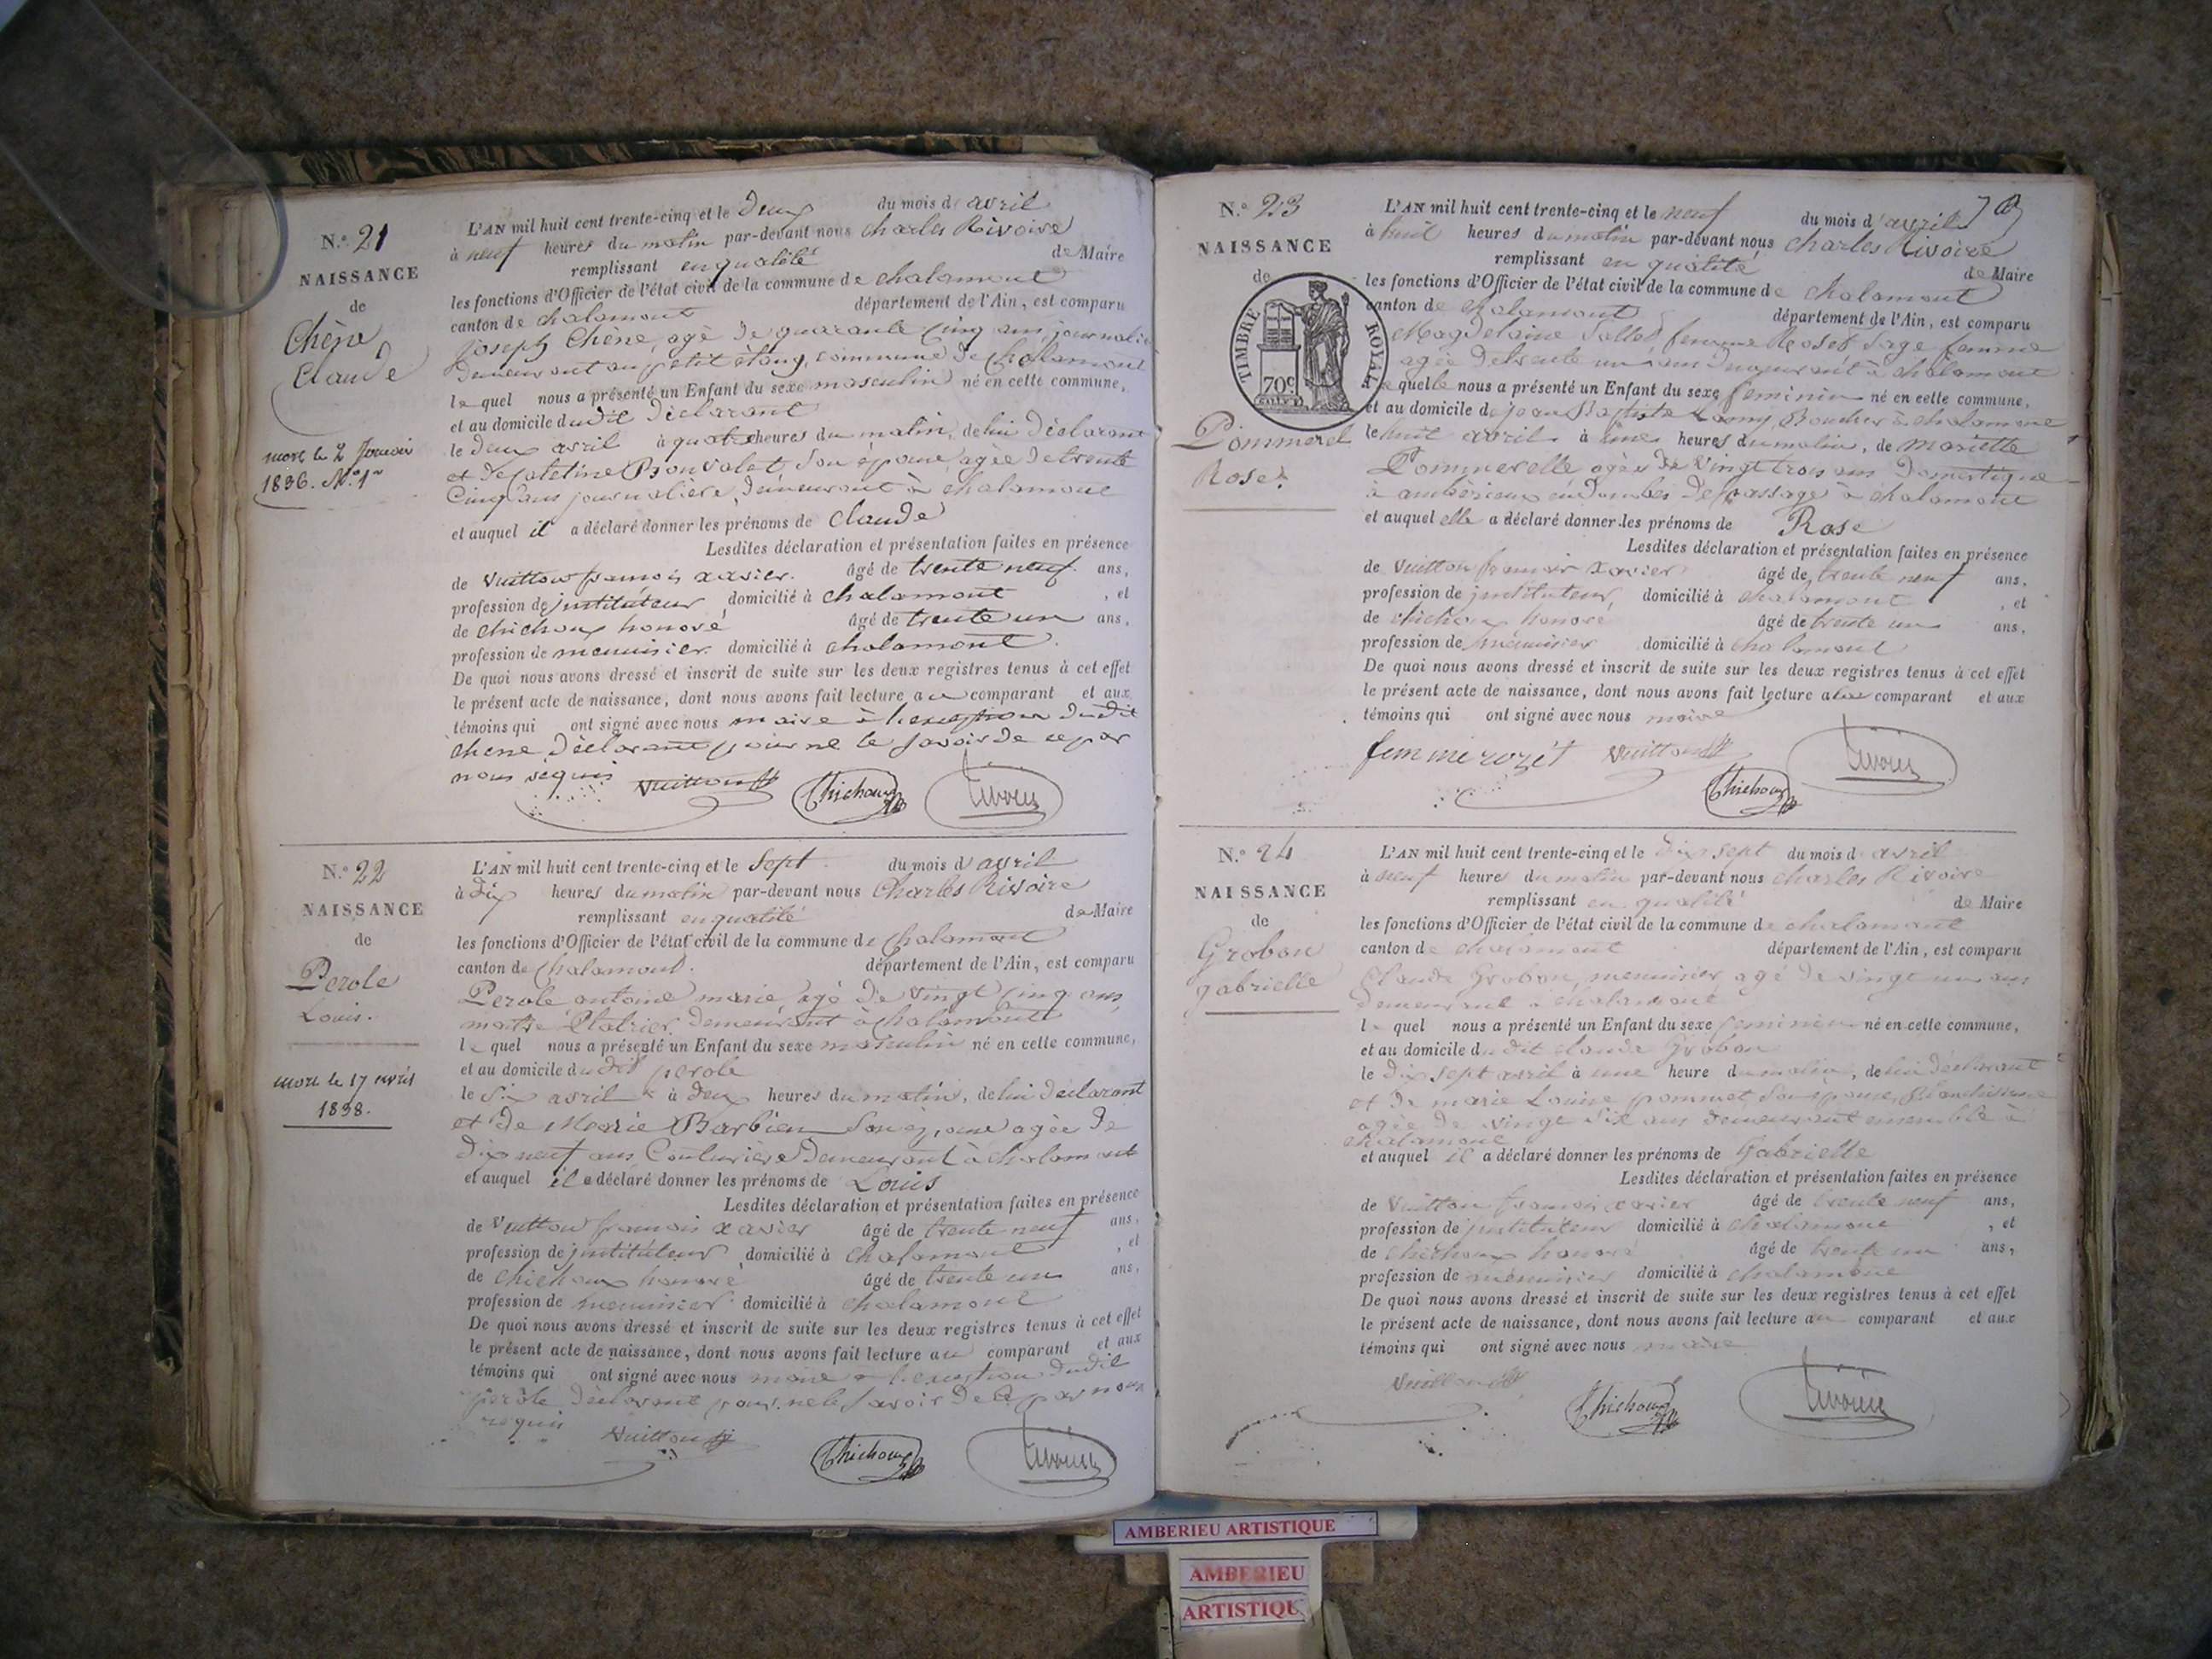 N.º 21
NAISSANCE
de
Chêne
Claude
mort le 2 Janvier
1836. N.º 1er
L'AN mil huit cent trente-cinq et le deux du mois d'avril
à neuf heures du matin par-devant nous Charles Rivoire
remplissant en qualité de Maire
les fonctions d'Officier de l'état civil de la commune de chalamont
canton de chalamont département de l'Ain, est comparu
joseph Chêne, agé de quarante cinq ans, journalier
demeurant au petit étang, commune de Chalamont
lequel nous a présenté un Enfant du sexe masculin né en cette commune,
et au domicile dudit déclarant
le deux avril à quatre heures du matin, de lui déclarant
et de Bonvalet, son épouse, agée de trente
cinq ans journalière, demeurant à chalamont
et auquel il a déclaré donner les prénoms de Claude
Lesdites déclaration et présentation faites en présence
de Vuitton françois xavier. âgé de trente neuf ans,
profession de instituteur domicilié à chalamont , et
de chichoux honoré âgé de trente un ans,
profession de menuisier domicilié à chalamont.
De quoi nous avons dressé et inscrit de suite sur les deux registres tenus à cet effet
le présent acte de naissance, dont nous avons fait lecture au comparant et aux
témoins qui ont signé avec nous maire à l'exception dudit
chene déclarant pour ne le savoir de ce par
nous requis Vuitton Chichoux Rivoire
N.º 22
NAISSANCE
de
Perole
Louis.
mort le 17 avril
1838.
L'AN mil huit cent trente-cinq et le sept du mois d'avril
à dix heures du matin par-devant nous Charles Rivoire
remplissant en qualité de Maire
les fonctions d'Officier de l'état civil de la commune de Chalamont
canton de Chalamont. département de l'Ain, est comparu
Perole antoine marie, agé de vingt cinq ans,
maitre Platrier, demeurant à chalamont
lequel nous a présenté un Enfant du sexe masculin né en cette commune,
et au domicile dudit perole
le six avril à deux heures du matin, de lui déclarant
et de Marie Barbien son épouse agée de
dix neuf ans Couturière demeurant à chalamont
et auquel il a déclaré donner les prénoms de Louis
Lesdites déclaration et présentation faites en présence
de Vuitton françois xavier âgé de trente neuf ans,
profession de instituteur domicilié à chalamont , et
de chichoux honoré âgé de trente un ans,
profession de menuisier domicilié à chalamont
De quoi nous avons dressé et inscrit de suite sur les deux registres tenus à cet effet
le présent acte de naissance, dont nous avons fait lecture au comparant et aux
témoins qui ont signé avec nous maire à l'exception dudit
perole déclarant pour ne le savoir de ce par nous
requis Vuitton Chichoux Rivoire
N.º 23
NAISSANCE
de
TIMBRE ROYAL
70 c
Pommerel
Rose
L'AN mil huit cent trente-cinq et le neuf du mois d'avril
à huit heures du matin par-devant nous Charles Rivoire
remplissant en qualité de Maire
les fonctions d'Officier de l'état civil de la commune de chalamont
canton de chalamont département de l'Ain, est comparu
Magdelaine femme Rozet sage femme
agée de trente un ans demeurant à chalamont
laquelle nous a présenté un Enfant du sexe feminin né en cette commune,
et au domicile de jean Baptiste à chalamont
le huit avril à une heures du matin, de Mariette
Pommerelle agée de vingt trois ans domestique
à ambérieux en Dombes de passage à chalamont
et auquel elle a déclaré donner les prénoms de Rose
Lesdites déclaration et présentation faites en présence
de Vuitton françois xavier âgé de trente neuf ans,
profession de instituteur, domicilié à chalamont , et
de chichoux honoré âgé de trente un ans,
profession de menuisier domicilié à chalamont
De quoi nous avons dressé et inscrit de suite sur les deux registres tenus à cet effet
le présent acte de naissance, dont nous avons fait lecture a comparant et aux
témoins qui ont signé avec nous maire
femme rozet Vuitton Chichoux Rivoire
N.º 24
NAISSANCE
de
Grobon
gabrielle
L'AN mil huit cent trente-cinq et le dix sept du mois d'avril
à neuf heures du matin par-devant nous Charles Rivoire
remplissant en qualité de Maire
les fonctions d'Officier de l'état civil de la commune de chalamont
canton de chalamont département de l'Ain, est comparu
Claude Grobon, menuisier, agé de vingt un ans
demeurant à chalamont
lequel nous a présenté un Enfant du sexe feminin né en cette commune,
et au domicile dudit claude Grobon
le dix sept avril à une heure du matin, de lui déclarant
et de marie Louise pommet son epouse, Blanchisseuse
agée de vingt six ans demeurant ensemble à
chalamont
et auquel il a déclaré donner les prénoms de Gabrielle
Lesdites déclaration et présentation faites en présence
de Vuitton françois xavier âgé de trente neuf ans,
profession de instituteur domicilié à chalamont , et
de chichoux honoré âgé de trente un ans,
profession de menuisier domicilié à chalamont
De quoi nous avons dressé et inscrit de suite sur les deux registres tenus à cet effet
le présent acte de naissance, dont nous avons fait lecture au comparant et aux
témoins qui ont signé avec nous maire
Vuitton Chichoux Rivoire
AMBERIEU ARTISTIQUE
AMBERIEU
ARTISTIQU